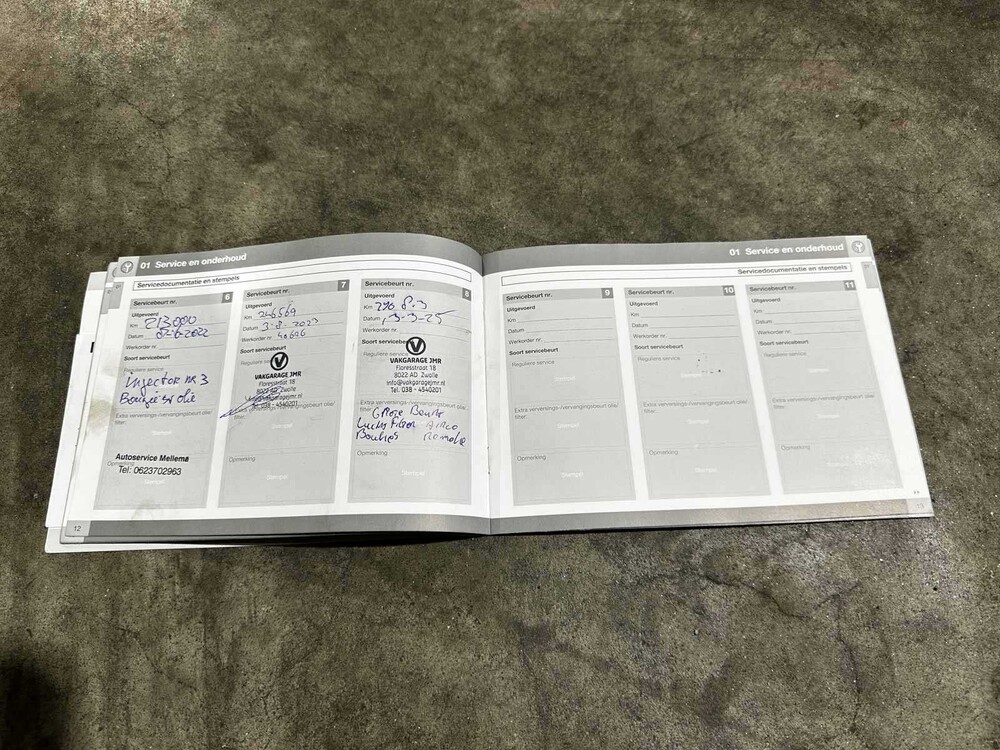 01 Service en onderhoud
Servicedocumentatie en stempels
Servicebeurt nr. 6
Uitgevoerd
Km 213000
Datum
Werkorder nr.
Soort servicebeurt
Reguliere service
Injector nr 3
Bougies olie
Extra verversings-/vervangingsbeurt olie/
filter:
Stempel
Autoservice Mellema
Opmerking
Tel: 0623702963
Stempel
12
Servicebeurt nr. 7
Uitgevoerd
Km 246569
Datum 3-8-2023
Werkorder nr.
Soort servicebeurt
Reguliere service
VAKGARAGE JMR
Floresstraat 18
8022 AD Zwolle
info@vakgaragejmr.nl
Tel. 038 - 4540201
Extra verversings-/vervangingsbeurt olie/
filter:
Opmerking
Stempel
Servicebeurt nr. 8
Uitgevoerd
Km
Datum
Werkorder nr.
Soort servicebeurt
Reguliere service
VAKGARAGE JMR
Floresstraat 18
8022 AD Zwolle
info@vakgaragejmr.nl
Tel. 038 - 4540201
Extra verversings-/vervangingsbeurt olie/
filter:
Grote Beurt
Airco
Opmerking
Stempel
01 Service en onderhoud
Servicedocumentatie en stempels
Servicebeurt nr. 9
Uitgevoerd
Km
Datum
Werkorder nr.
Soort servicebeurt
Reguliere service
Stempel
Extra verversings-/vervangingsbeurt olie/
filter:
Stempel
Opmerking
Stempel
Servicebeurt nr. 10
Uitgevoerd
Km
Datum
Werkorder nr.
Soort servicebeurt
Reguliere service
Stempel
Extra verversings-/vervangingsbeurt olie/
filter:
Stempel
Opmerking
Stempel
Servicebeurt nr. 11
Uitgevoerd
Km
Datum
Werkorder nr.
Soort servicebeurt
Reguliere service
Stempel
Extra verversings-/vervangingsbeurt olie/
filter:
Stempel
Opmerking
Stempel